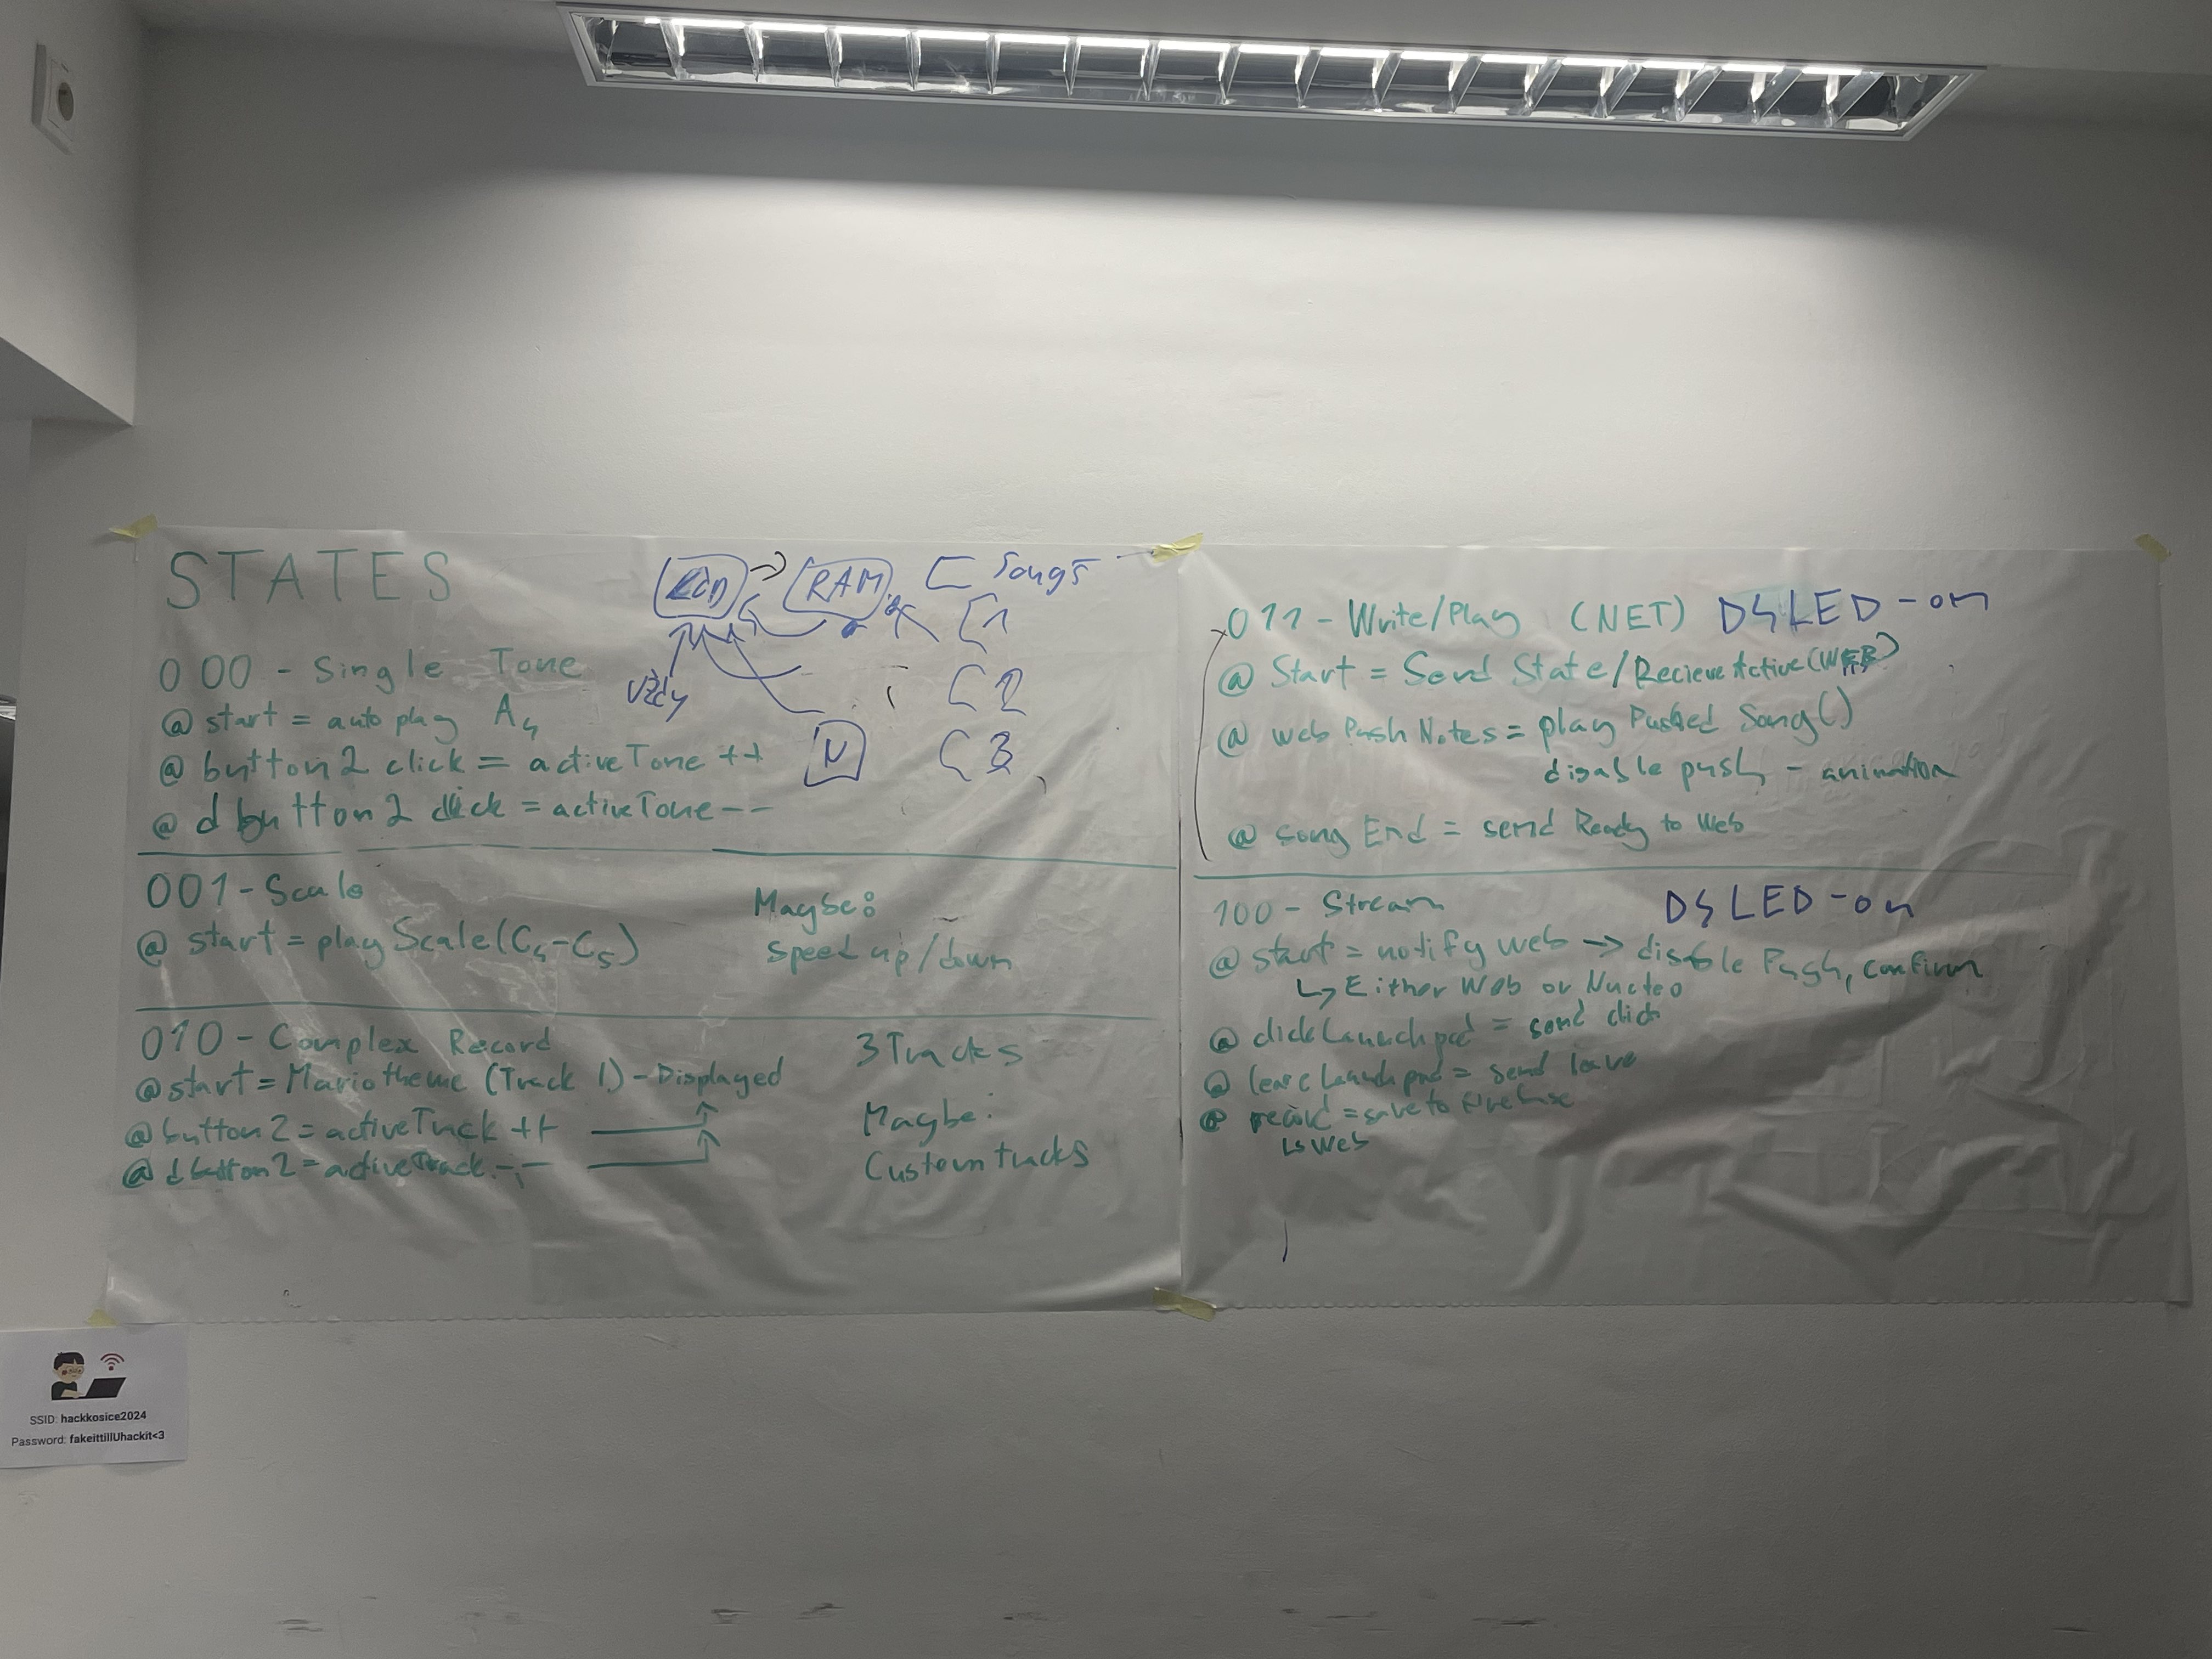 STATES
RAM
Songs
1
2
N
3
000 - Single Tone
@ start = auto play A4
@ button2 click = activeTone ++
@ d button2 click = activeTone --
001 - Scale
@ start = play Scale(C4-C5)
Maybe:
speed up/down
010 - Complex Record
@start = Mario theme (Track 1) - Displayed
@button2 = activeTrack ++
@dbutton2 = activeTrack --
3 Tracks
Maybe:
Custom tracks
011 - Write/Play (NET) D4 LED - on
@ Start = Send State/Recieve Active (WEB)
@ web Push Notes = play Pushed Song()
disable push - animation
@ song End = send Ready to Web
100 - Stream D4 LED - on
@ start = notify web → disable Push, confirm
↳ Either Web or Nucleo
@ click Launchpad = send click
@ leave Launchpad = send leave
@ record = save to firebase
↳ Web
SSID: hackkosice2024
Password: fakeittillUhackit<3